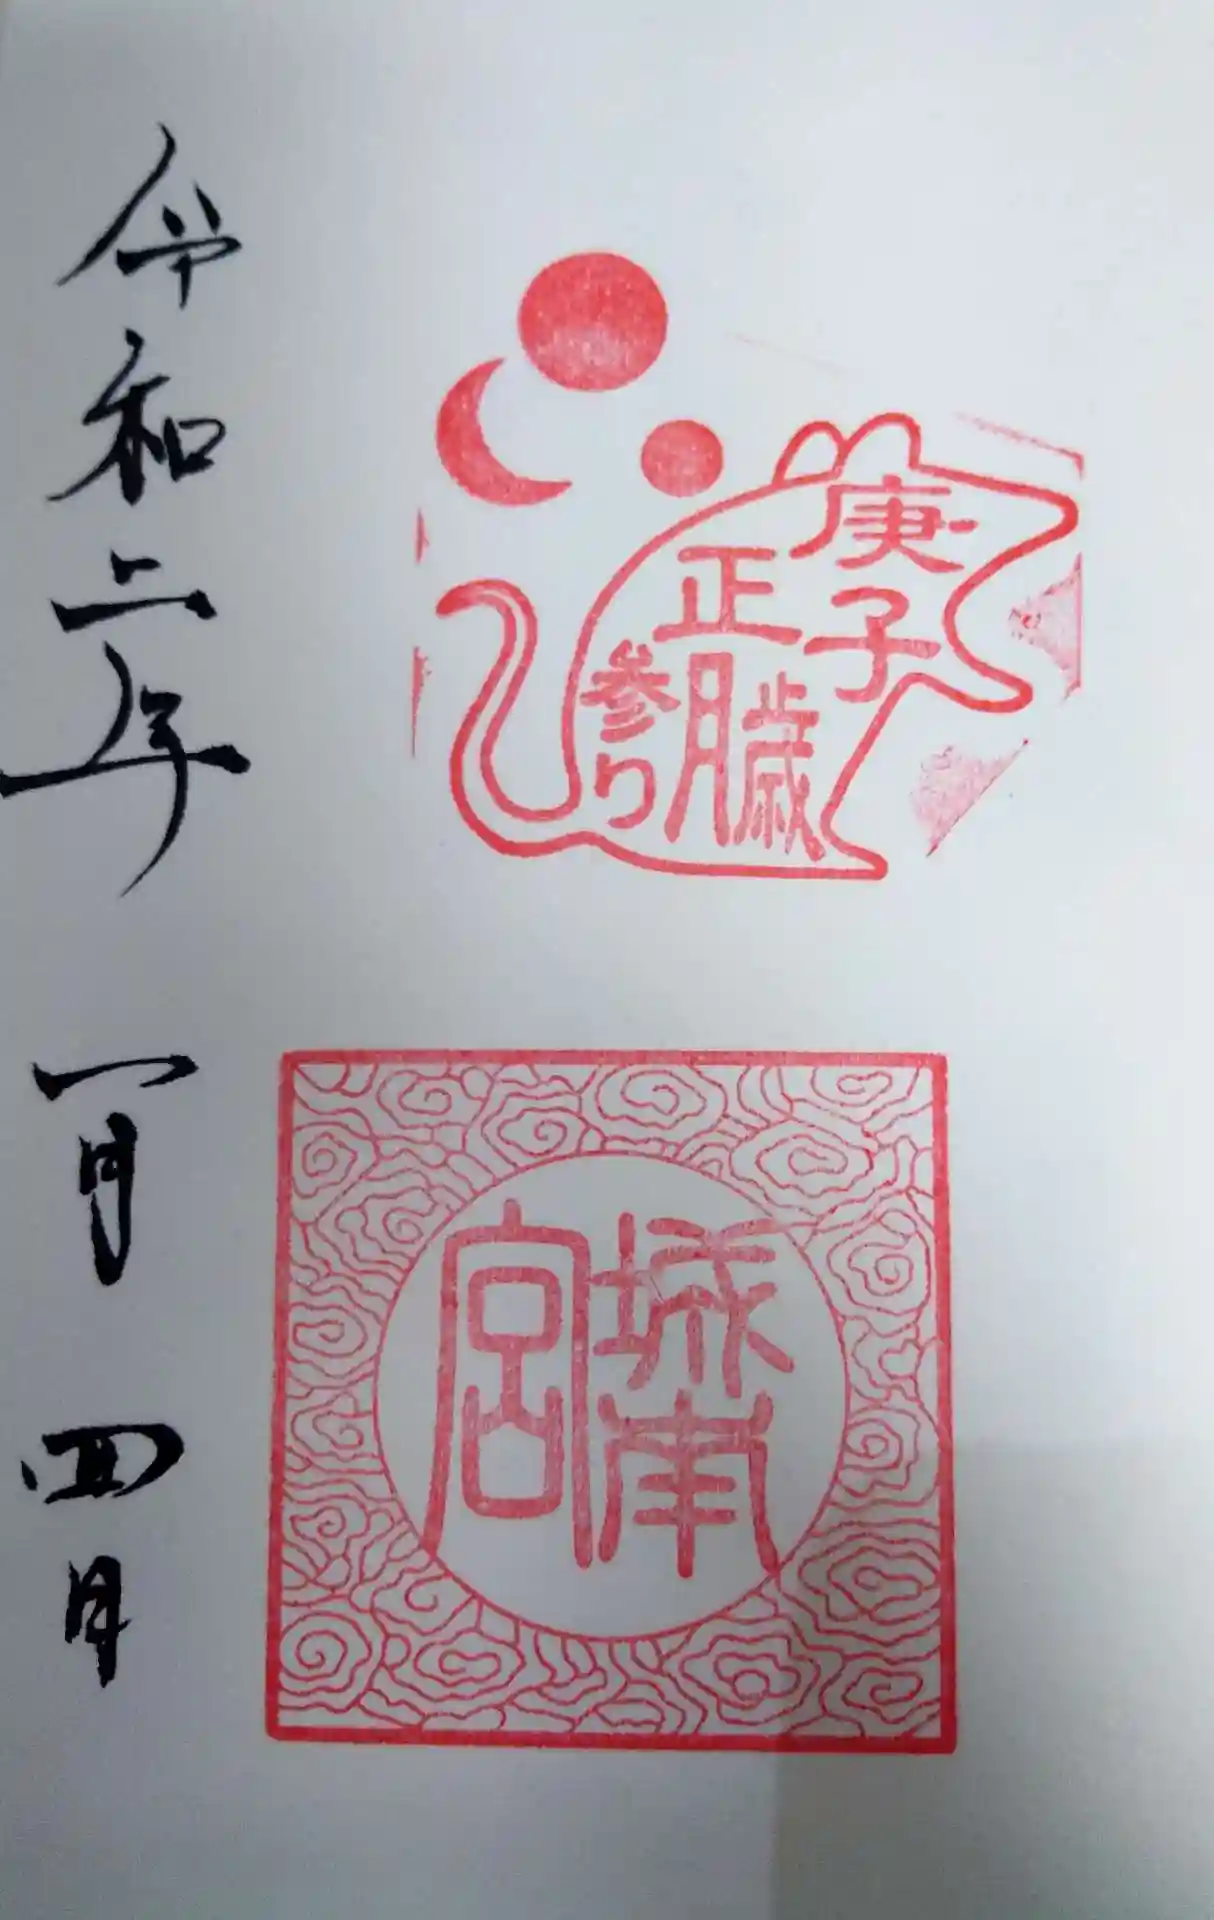 庚子歳
正月
参り
城南
宮
令和二年 一月四日